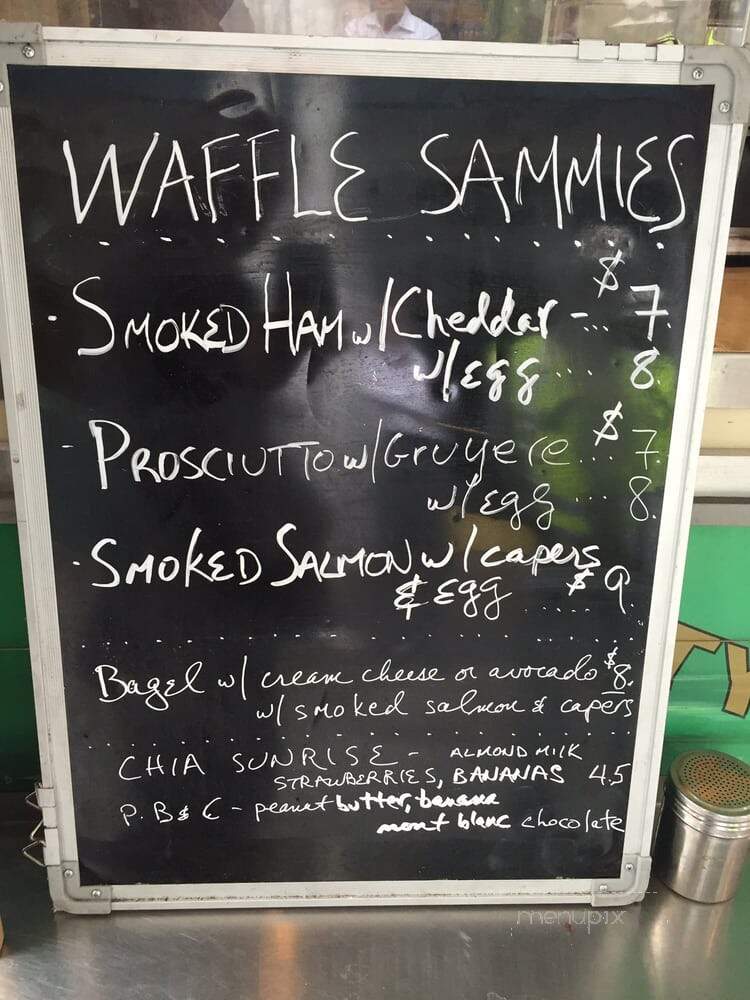 WAFFLE SAMMIES
· SMOKED HAM w/Cheddar - ... $7.
w/egg ... 8.
- PROSCIUTTO w/Gruyere ... $7.
w/egg ... 8.
· SMOKED SALMON w/capers
& egg ..... $9.
Bagel w/ cream cheese or avocado $8.
w/ smoked salmon & capers
CHIA SUNRISE - ALMOND MILK
STRAWBERRIES, BANANAS 4.5
P. B & C - peanut butter, banana
mont blanc chocolate
menupix